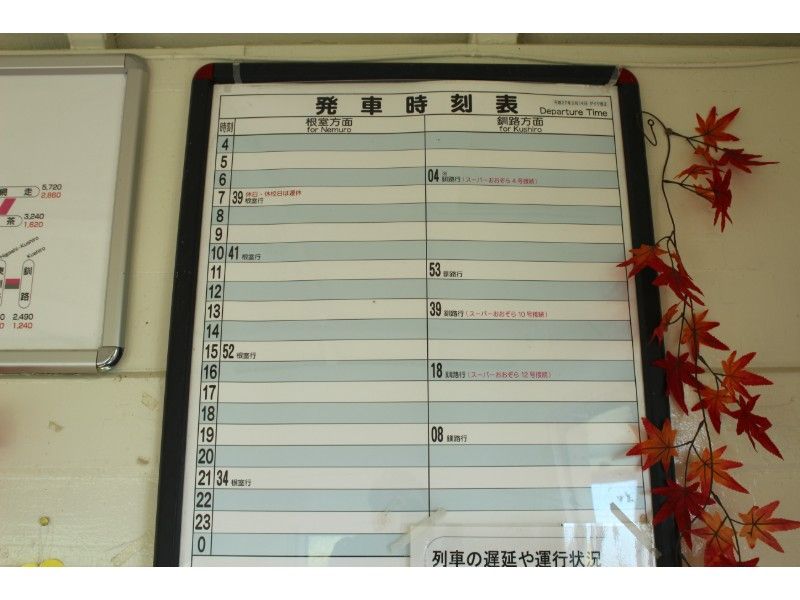 発車時刻表
平成27年3月14日 ダイヤ改正
Departure Time
時刻 根室方面 for Nemuro 釧路方面 for Kushiro
4
5
6 04 釧路行(スーパーおおぞら4号接続)
7 39 休日・休校日は運休 根室行
8
9
10 41 根室行
11 53 釧路行
12
13 39 釧路行(スーパーおおぞら10号接続)
14
15 52 根室行
16 18 釧路行(スーパーおおぞら12号接続)
17
18
19 08 釧路行
20
21 34 根室行
22
23
0
列車の遅延や運行状況
網走 5,720
2,860
茶 3,240
1,620
Higashi-Kushiro Kushiro
釧路
2,490
1,240